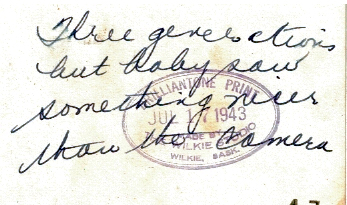 Three generations
but baby saw
something nicer
than the camera
BRILLIANTONE PRINT
JUL 17 1943
MADE BY
WILKIE
WILKIE, SASK.